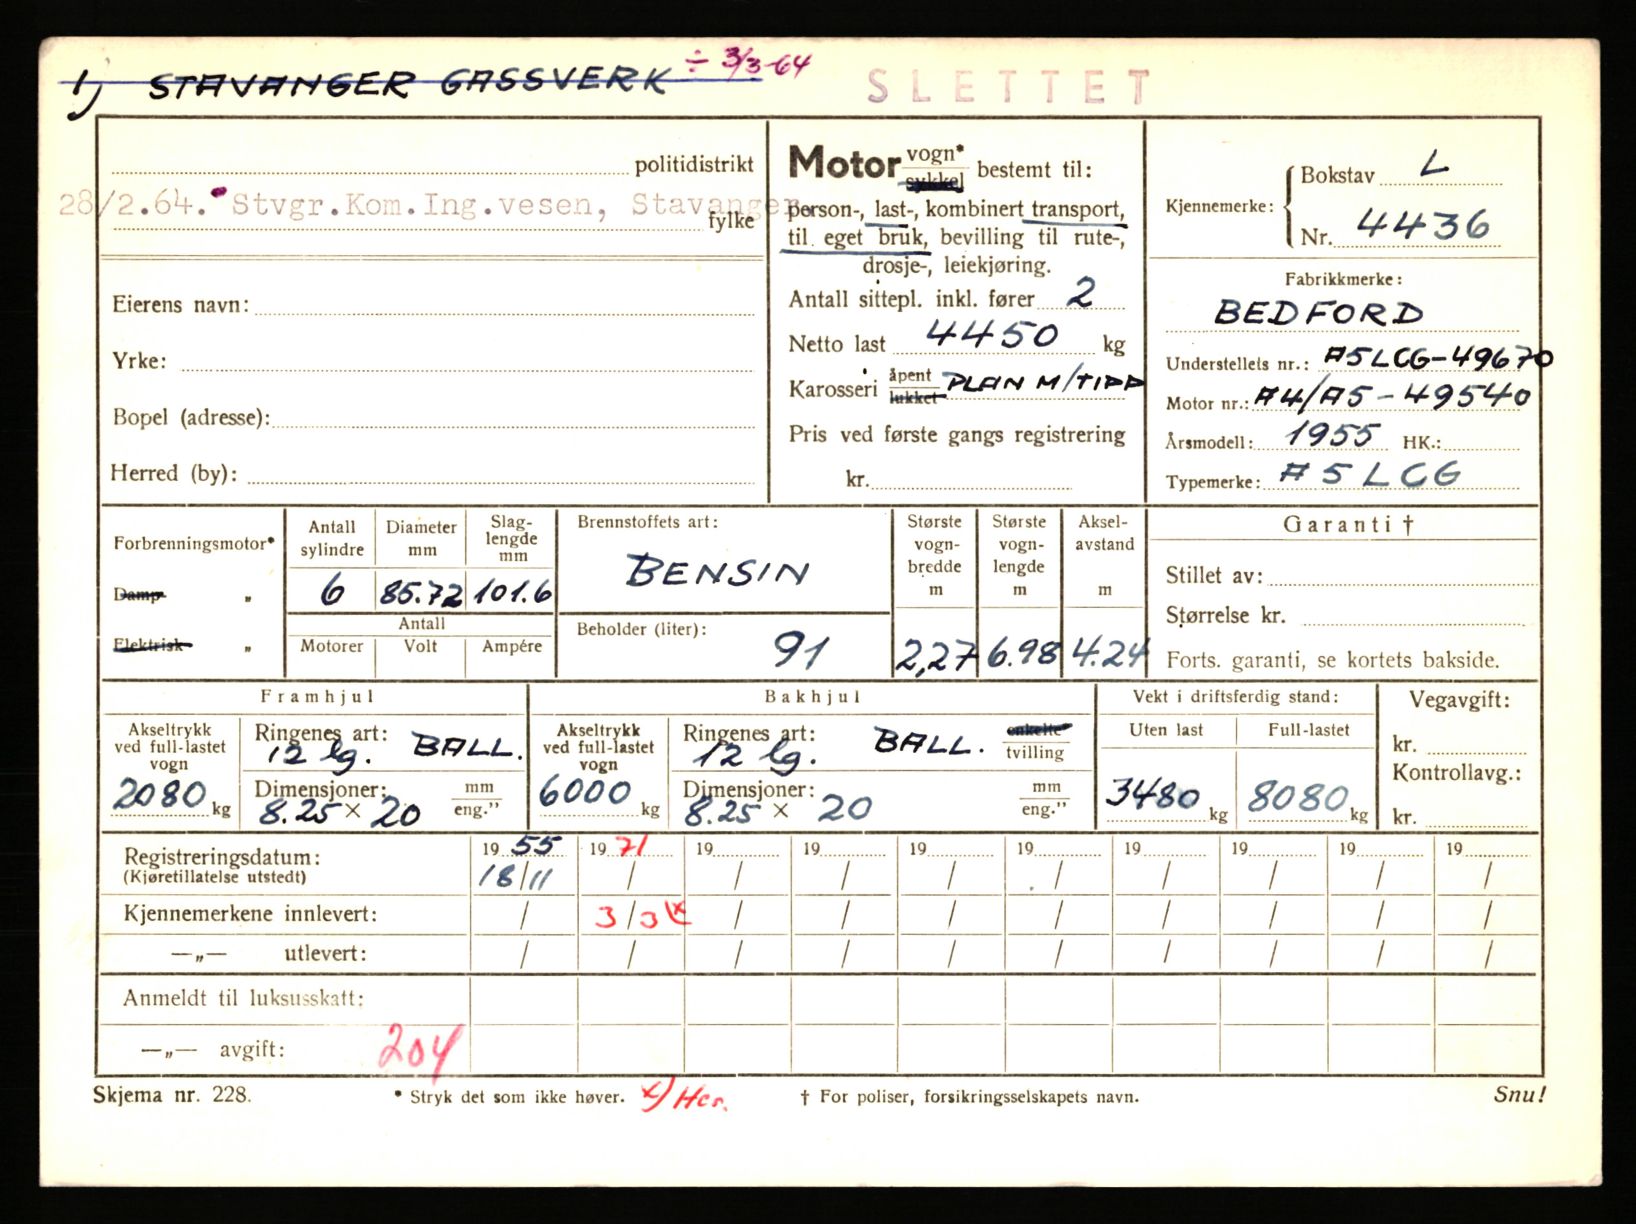 1) STAVANGER GASSVERK ÷ 3/3-64
SLETTET
politidistrikt
28/2.64. Stvgr.Kom.Ing.vesen, Stavanger
fylke
Eierens navn:
Yrke:
Bopel (adresse):
Herred (by):
Motor vogn* sykkel bestemt til:
person-, last-, kombinert transport,
til eget bruk, bevilling til rute-,
drosje-, leiekjøring.
Antall sittepl. inkl. fører 2
Netto last 4450 kg
Karosseri åpent lukket PLAN M/TIPP
Pris ved første gangs registrering
kr.
Kjennemerke: Bokstav L
Nr. 4436
Fabrikkmerke:
BEDFORD
Understellets nr.: A5LCG-49670
Motor nr.: A4/A5-49540
Årsmodell: 1955 HK.:
Typemerke: A5LCG
Forbrenningsmotor*
Damp „
Elektrisk „
Antall sylindre
Diameter mm
Slag-lengde mm
6 85.72 101.6
Antall
Motorer Volt Ampére
Brennstoffets art:
BENSIN
Beholder (liter):
91
Største vogn-bredde m
Største vogn-lengde m
Aksel-avstand m
2,27 6.98 4.24
Garanti †
Stillet av:
Størrelse kr.
Forts. garanti, se kortets bakside.
Framhjul
Akseltrykk ved full-lastet vogn
2080 kg
Ringenes art:
12 lg. BALL.
Dimensjoner: mm eng."
8.25 × 20
Bakhjul
Akseltrykk ved full-lastet vogn
6000 kg
Ringenes art:
12 lg. BALL. enkelte tvilling
Dimensjoner: mm eng."
8.25 × 20
Vekt i driftsferdig stand:
Uten last Full-lastet
3480 kg 8080 kg
Vegavgift:
kr.
Kontrollavg.:
kr.
Registreringsdatum: 19 55 19 71 19 19 19 19 19 19 19 19
(Kjøretillatelse utstedt) 18/11 / / / / / / / / /
Kjennemerkene innlevert: / 3/3 x) / / / / / / / /
—„— utlevert: / / / / / / / / / /
Anmeldt til luksusskatt:
—„— avgift: 204
Skjema nr. 228.
* Stryk det som ikke høver. x) Hcr.
† For poliser, forsikringsselskapets navn.
Snu!